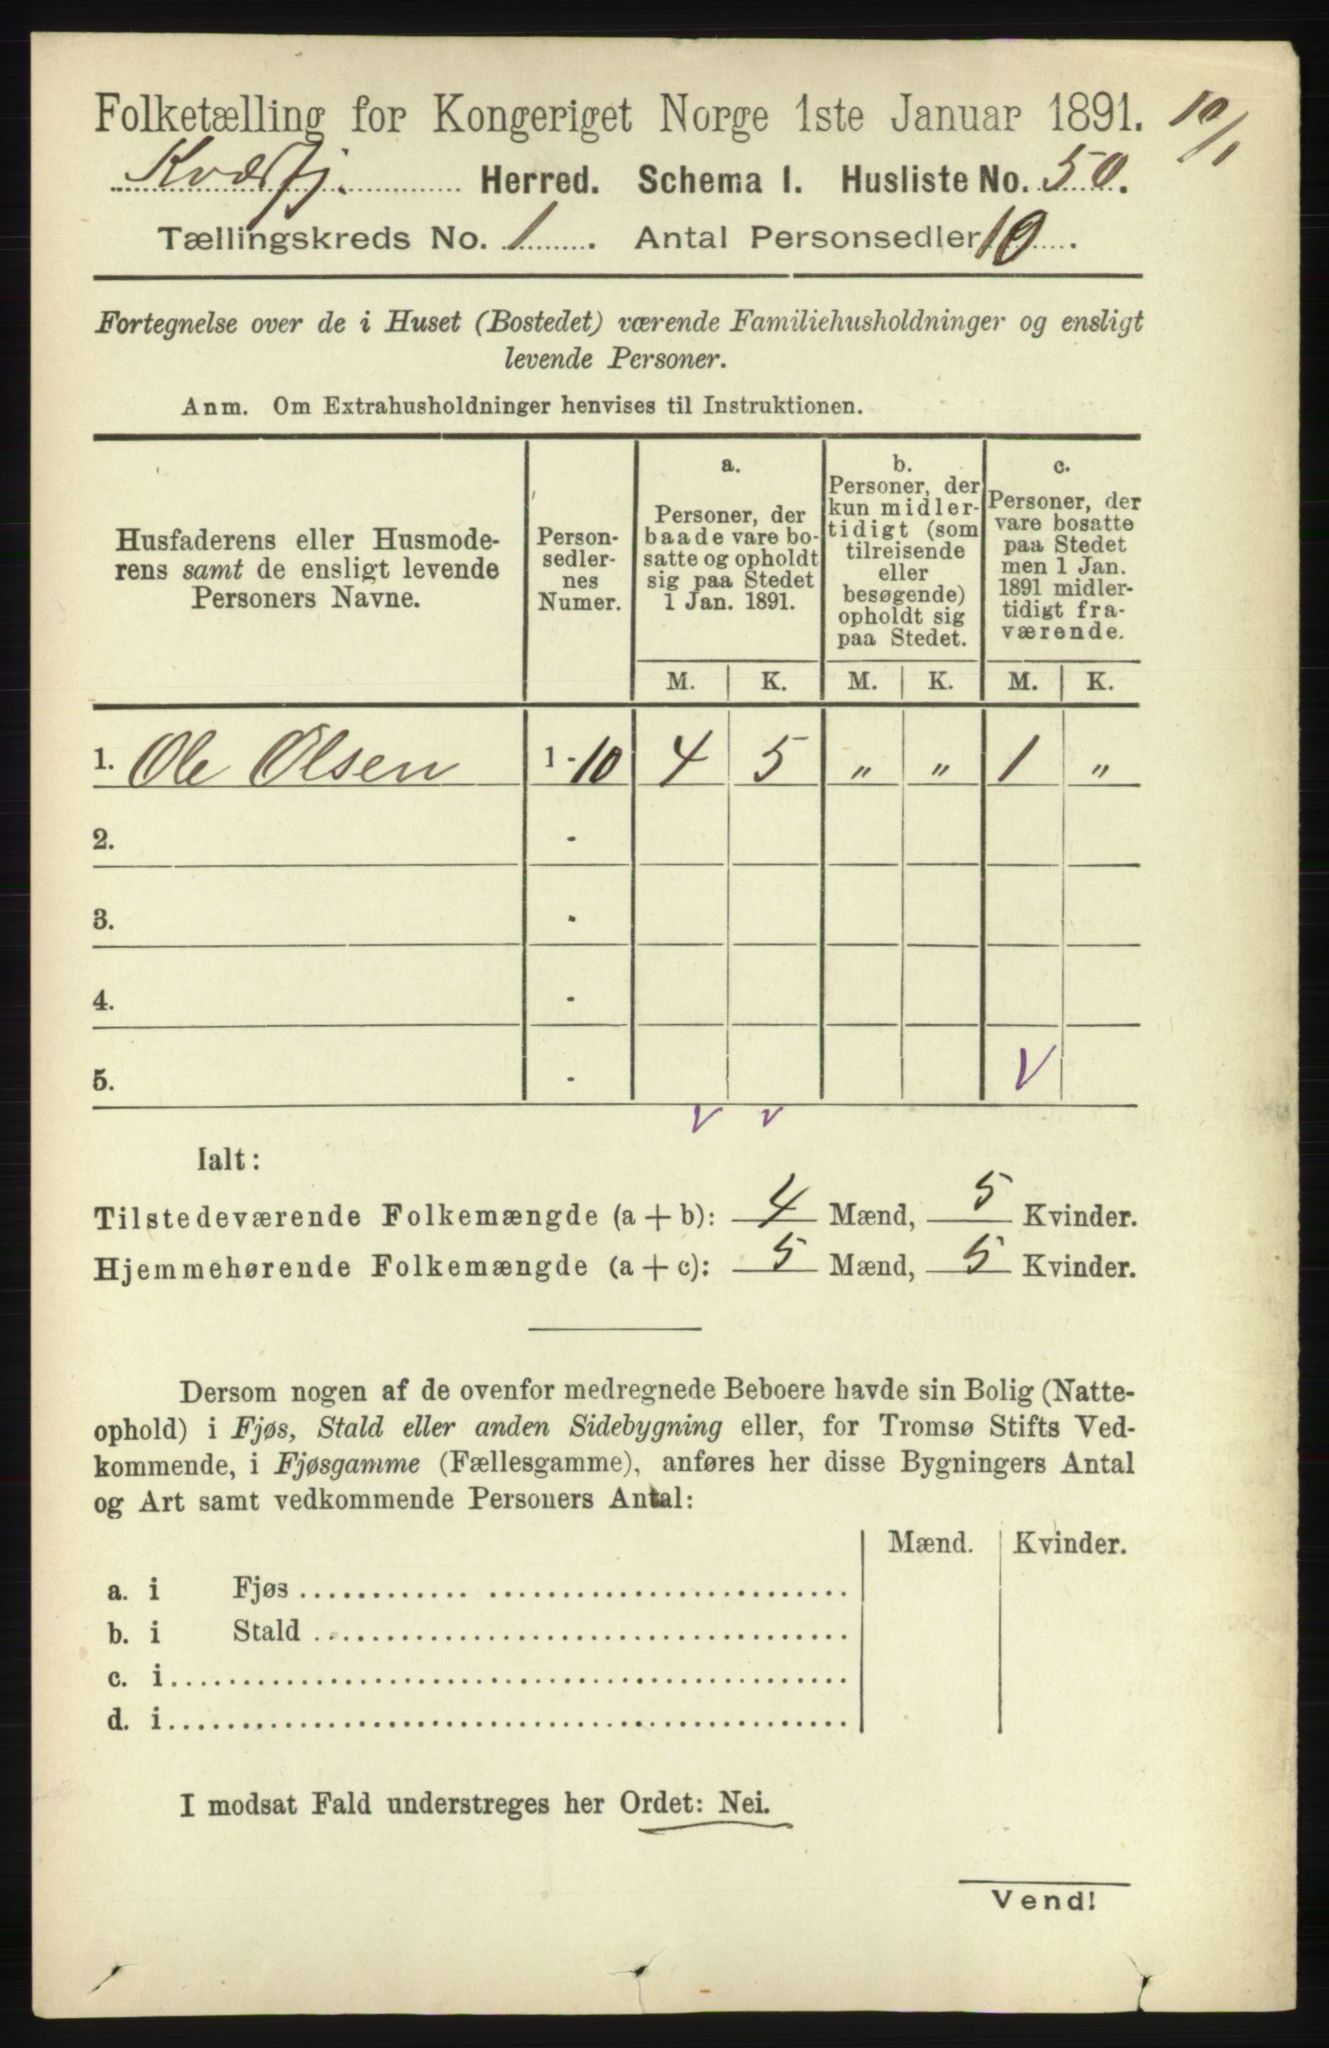 Folketælling for Kongeriget Norge 1ste Januar 1891. 10/1
Kvæfj. Herred. Schema I. Husliste No. 50.
Tællingskreds No. 1. Antal Personsedler 10.
Fortegnelse over de i Huset (Bostedet) værende Familiehusholdninger og ensligt
levende Personer.
Anm. Om Extrahusholdninger henvises til Instruktionen.
Husfaderens eller Husmode-
rens samt de ensligt levende
Personers Navne.
Person-
sedler-
nes
Numer.
a.
Personer, der
baade vare bo-
satte og opholdt
sig paa Stedet
1 Jan. 1891.
b.
Personer, der
kun midler-
tidigt (som
tilreisende
eller
besøgende)
opholdt sig
paa Stedet.
c.
Personer, der
vare bosatte
paa Stedet
men 1 Jan.
1891 midler-
tidigt fra-
værende.
M. K. M. K. M. K.
1. Ole Olsen 1 - 10 4 5 „ „ 1 „
2. -
3. -
4. -
5. - V
V V
Ialt:
Tilstedeværende Folkemængde (a + b): 4 Mænd, 5 Kvinder.
Hjemmehørende Folkemængde (a + c): 5 Mænd, 5 Kvinder.
Dersom nogen af de ovenfor medregnede Beboere havde sin Bolig (Natte-
ophold) i Fjøs, Stald eller anden Sidebygning eller, for Tromsø Stifts Ved-
kommende, i Fjøsgamme (Fællesgamme), anføres her disse Bygningers Antal
og Art samt vedkommende Personers Antal:
Mænd. Kvinder.
a. i Fjøs
b. i Stald
c. i
d. i
I modsat Fald understreges her Ordet: Nei.
Vend!